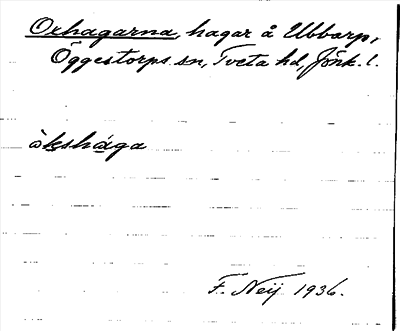 Oxhagarna, hagar å Ubbarp,
Öggestorps sn, Tveta hd, Jönk. l.
òkshága
F. Neij 1936.